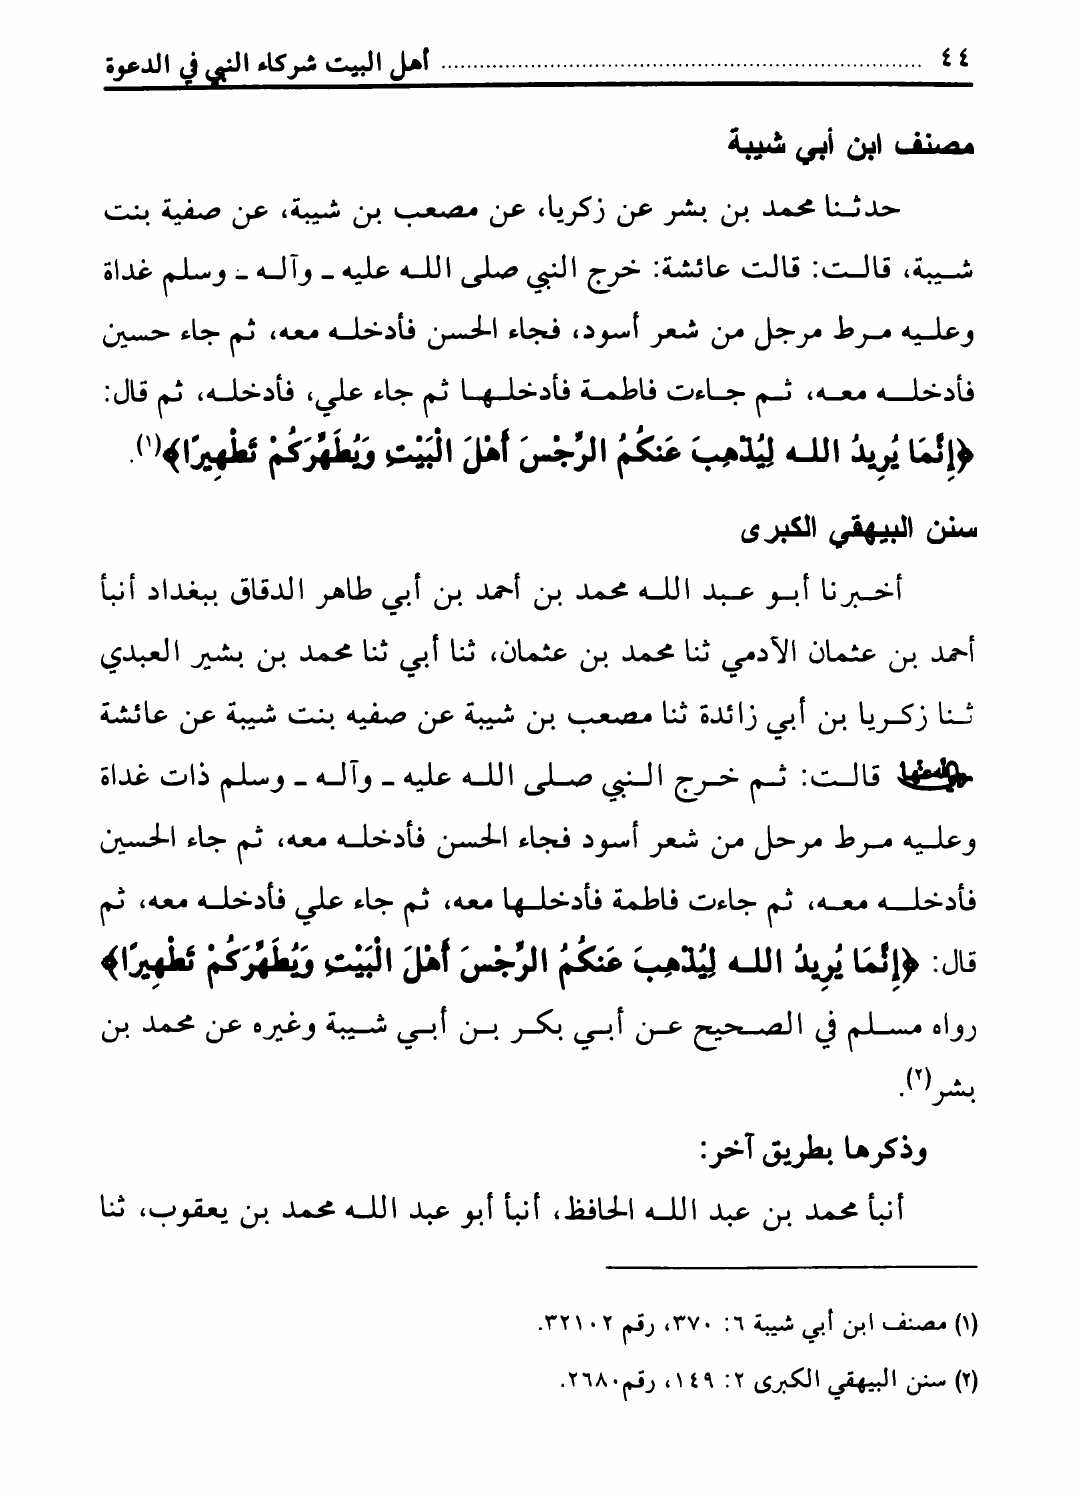 ٤٤ ........................................................................ أهل البيت شركاء النبي في الدعوة
مصنف ابن أبي شيبة
حدثنا محمد بن بشر عن زكريا، عن مصعب بن شيبة، عن صفية بنت
شيبة، قالت: قالت عائشة: خرج النبي صلى الله عليه ـ وآله ـ وسلم غداة
وعليه مرط مرجل من شعر أسود، فجاء الحسن فأدخله معه، ثم جاء حسين
فأدخله معه، ثم جاءت فاطمة فأدخلها ثم جاء علي، فأدخله، ثم قال:
﴿إِنَّمَا يُرِيدُ الله لِيُذْهِبَ عَنكُمُ الرِّجْسَ أَهْلَ الْبَيْتِ وَيُطَهِّرَكُمْ تَطْهِيرًا﴾(١).
سنن البيهقي الكبرى
أخبرنا أبو عبد الله محمد بن أحمد بن أبي طاهر الدقاق ببغداد أنبأ
أحمد بن عثمان الآدمي ثنا محمد بن عثمان، ثنا أبي ثنا محمد بن بشير العبدي
ثنا زكريا بن أبي زائدة ثنا مصعب بن شيبة عن صفيه بنت شيبة عن عائشة
قالت: ثم خرج النبي صلى الله عليه ـ وآله ـ وسلم ذات غداة
وعليه مرط مرحل من شعر أسود فجاء الحسن فأدخله معه، ثم جاء الحسين
فأدخله معه، ثم جاءت فاطمة فأدخلها معه، ثم جاء علي فأدخله معه، ثم
قال: ﴿إِنَّمَا يُرِيدُ الله لِيُذْهِبَ عَنكُمُ الرِّجْسَ أَهْلَ الْبَيْتِ وَيُطَهِّرَكُمْ تَطْهِيرًا﴾
رواه مسلم في الصحيح عن أبي بكر بن أبي شيبة وغيره عن محمد بن
بشر(٢).
وذكرها بطريق آخر:
أنبأ محمد بن عبد الله الحافظ، أنبأ أبو عبد الله محمد بن يعقوب، ثنا
(١) مصنف ابن أبي شيبة ٦: ٣٧٠، رقم ٣٢١٠٢.
(٢) سنن البيهقي الكبرى ٢: ١٤٩، رقم٢٦٨٠.